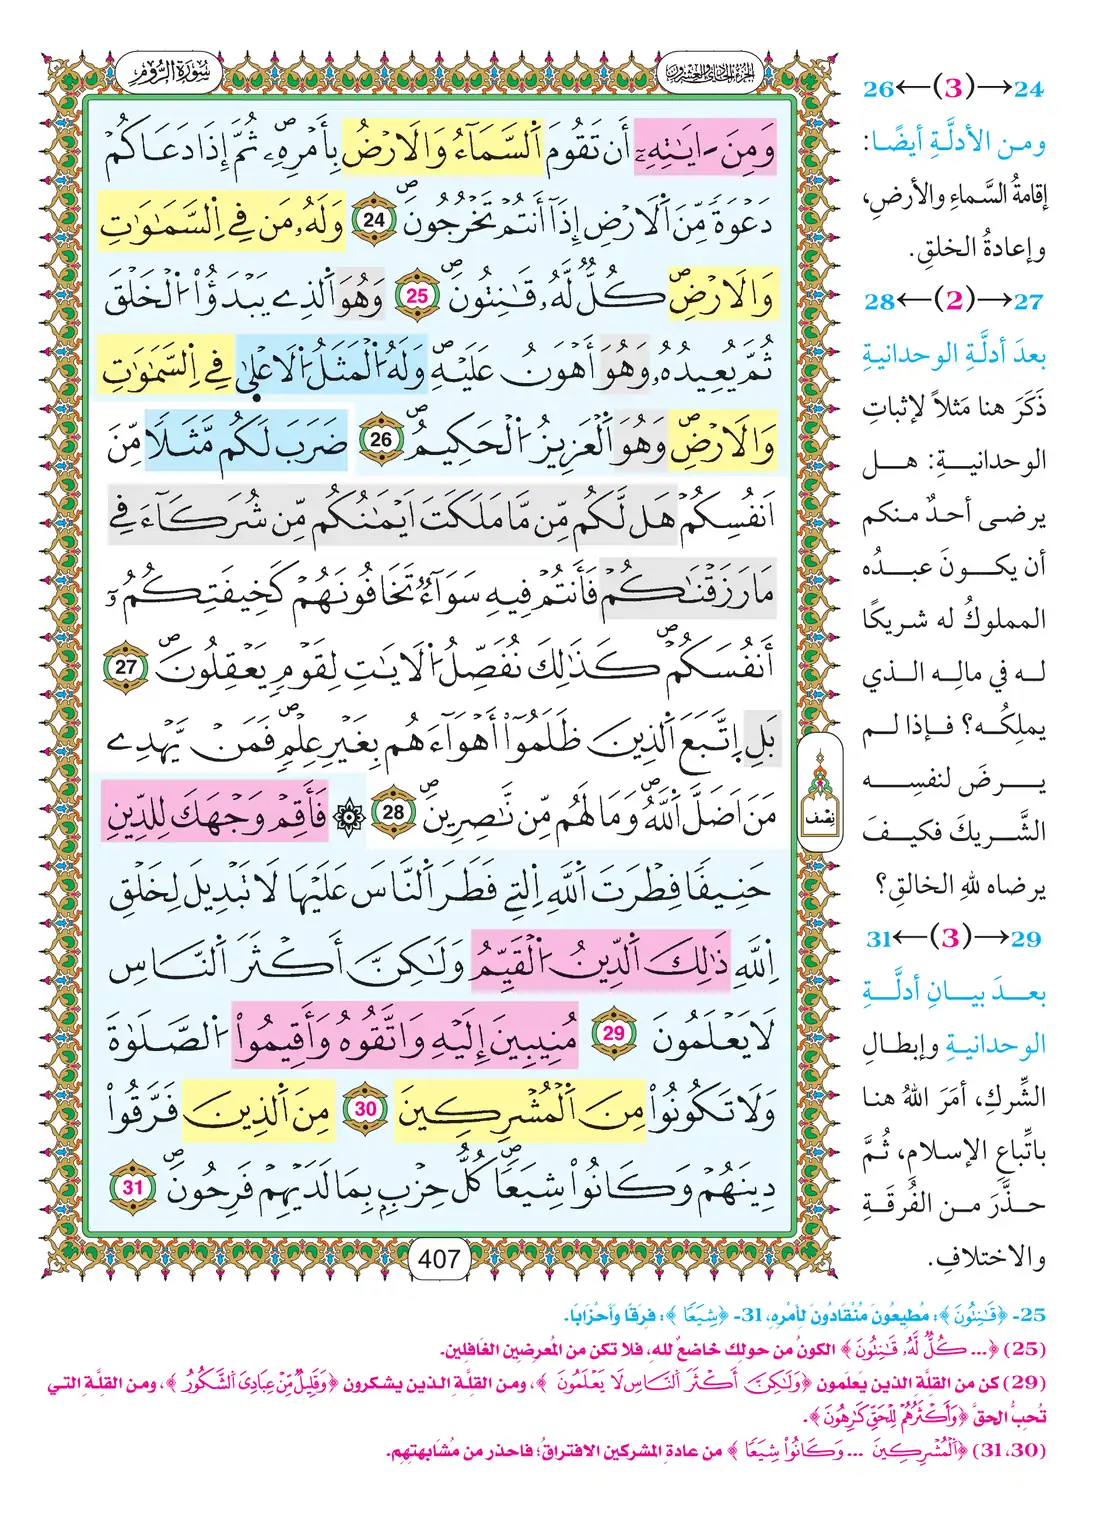 سُورَةُ الرُّومِ
الجزء الحادي والعشرون
وَمِنَ اٰيَٰتِهِۦٓ أَن تَقُومَ اَ۬لسَّمَآءُ وَالَارْضُ بِأَمْرِهِۦۖ ثُمَّ إِذَا دَعَاكُمْ
دَعْوَةٗ مِّنَ اَ۬لَارْضِ إِذَآ أَنتُمْ تَخْرُجُونَۖ 24 وَلَهُۥ مَن فِے اِ۬لسَّمَٰوَٰتِ
وَالَارْضِۖ كُلّٞ لَّهُۥ قَٰنِتُونَۖ 25 وَهُوَ اَ۬لذِے يَبْدَؤُاْ اُ۬لْخَلْقَ
ثُمَّ يُعِيدُهُۥ وَهُوَ أَهْوَنُ عَلَيْهِۖ وَلَهُ اُ۬لْمَثَلُ اُ۬لَاعْلَىٰ فِے اِ۬لسَّمَٰوَٰتِ
وَالَارْضِۖ وَهُوَ اَ۬لْعَزِيزُ اُ۬لْحَكِيمُۖ 26 ضَرَبَ لَكُم مَّثَلاٗ مِّنَ
اَنفُسِكُمْ هَل لَّكُم مِّن مَّا مَلَكَتَ اَيْمَٰنُكُم مِّن شُرَكَآءَ فِے
مَا رَزَقْنَٰكُمْ فَأَنتُمْ فِيهِ سَوَآءٞ تَخَافُونَهُمْ كَخِيفَتِكُمُۥٓ
أَنفُسَكُمْۖ كَذَٰلِكَ نُفَصِّلُ اُ۬لَايَٰتِ لِقَوْمٖ يَعْقِلُونَۖ 27
بَلِ اِ۪تَّبَعَ اَ۬لذِينَ ظَلَمُوٓاْ أَهْوَآءَهُم بِغَيْرِ عِلْمٖۖ فَمَنْ يَّهْدِے
مَنَ اَضَلَّ اَ۬للَّهُۖ وَمَا لَهُم مِّن نَّٰصِرِينَۖ 28 ۞ فَأَقِمْ وَجْهَكَ لِلدِّينِ
حَنِيفاٗ فِطْرَتَ اَ۬للَّهِ اِ۬لتِے فَطَرَ اَ۬لنَّاسَ عَلَيْهَا لَا تَبْدِيلَ لِخَلْقِ
اِ۬للَّهِ ذَٰلِكَ اَ۬لدِّينُ اُ۬لْقَيِّمُ وَلَٰكِنَّ أَكْثَرَ اَ۬لنَّاسِ
لَا يَعْلَمُونَ 29 مُنِيبِينَ إِلَيْهِ وَاتَّقُوهُ وَأَقِيمُواْ اُ۬لصَّلَوٰةَ
وَلَا تَكُونُواْ مِنَ اَ۬لْمُشْرِكِينَ 30 مِنَ اَ۬لذِينَ فَرَّقُواْ
دِينَهُمْ وَكَانُواْ شِيَعاٗۖ كُلُّ حِزْبِۢ بِمَا لَدَيْهِمْ فَرِحُونَۖ 31
نِصْف
407
24→(3)←26
ومن الأدلَّةِ أيضًا:
إقامةُ السَّماءِ والأرضِ،
وإعادةُ الخلقِ.
27→(2)←28
بعدَ أدلَّةِ الوحدانيةِ
ذَكَرَ هنا مَثلاً لإثباتِ
الوحدانيةِ: هل
يرضى أحدٌ منكم
أن يكونَ عبدُه
المملوكُ له شريكًا
له في مالِه الذي
يملِكُه؟ فإذا لم
يرضَ لنفسِه
الشَّريكَ فكيفَ
يرضاه للهِ الخالقِ؟
29→(3)←31
بعدَ بيانِ أدلَّةِ
الوحدانيةِ وإبطالِ
الشِّركِ، أمَرَ اللهُ هنا
باتِّباعِ الإسلامِ، ثُمَّ
حذَّرَ من الفُرقَةِ
والاختلافِ.
25- ﴿قَٰنِتُونَ﴾: مُطيعُونَ مُنْقادُونَ لِأمْرِهِ، 31- ﴿شِيَعًا﴾: فِرَقًا وَأحْزَابًا.
(25) ﴿... كُلٌّ لَّهُۥ قَٰنِتُونَ﴾ الكونُ من حولِك خاضعٌ للهِ، فلا تكن من المُعرضِين الغَافلِين.
(29) كن من القلَّةِ الذين يَعلَمون ﴿وَلَٰكِنَّ أَكْثَرَ اَلنَّاسِ لَا يَعْلَمُونَ﴾، ومن القلَّةِ الذين يشكرون ﴿وَقَلِيلٌ مِّنْ عِبَادِيَ اَلشَّكُورُ﴾، ومن القلَّةِ التي
تُحِبُّ الحقَّ ﴿وَأَكْثَرُهُمْ لِلْحَقِّ كَٰرِهُونَ﴾.
(31،30) ﴿اَلْمُشْرِكِينَ ... وَكَانُواْ شِيَعًا﴾ من عادةِ المشركين الافتراقُ؛ فاحذر من مُشابهتِهِم.